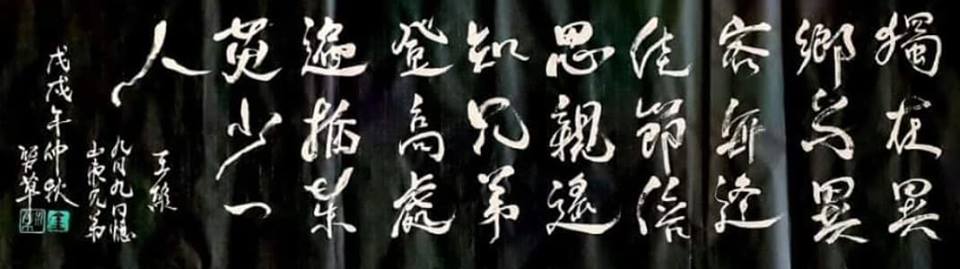 獨在異
鄉為異
客每逢
佳節倍
思親遙
知兄弟
登高處
遍插茱
萸少一
人
王維
九月九日憶
山東兄弟
戊戌年仲秋
草